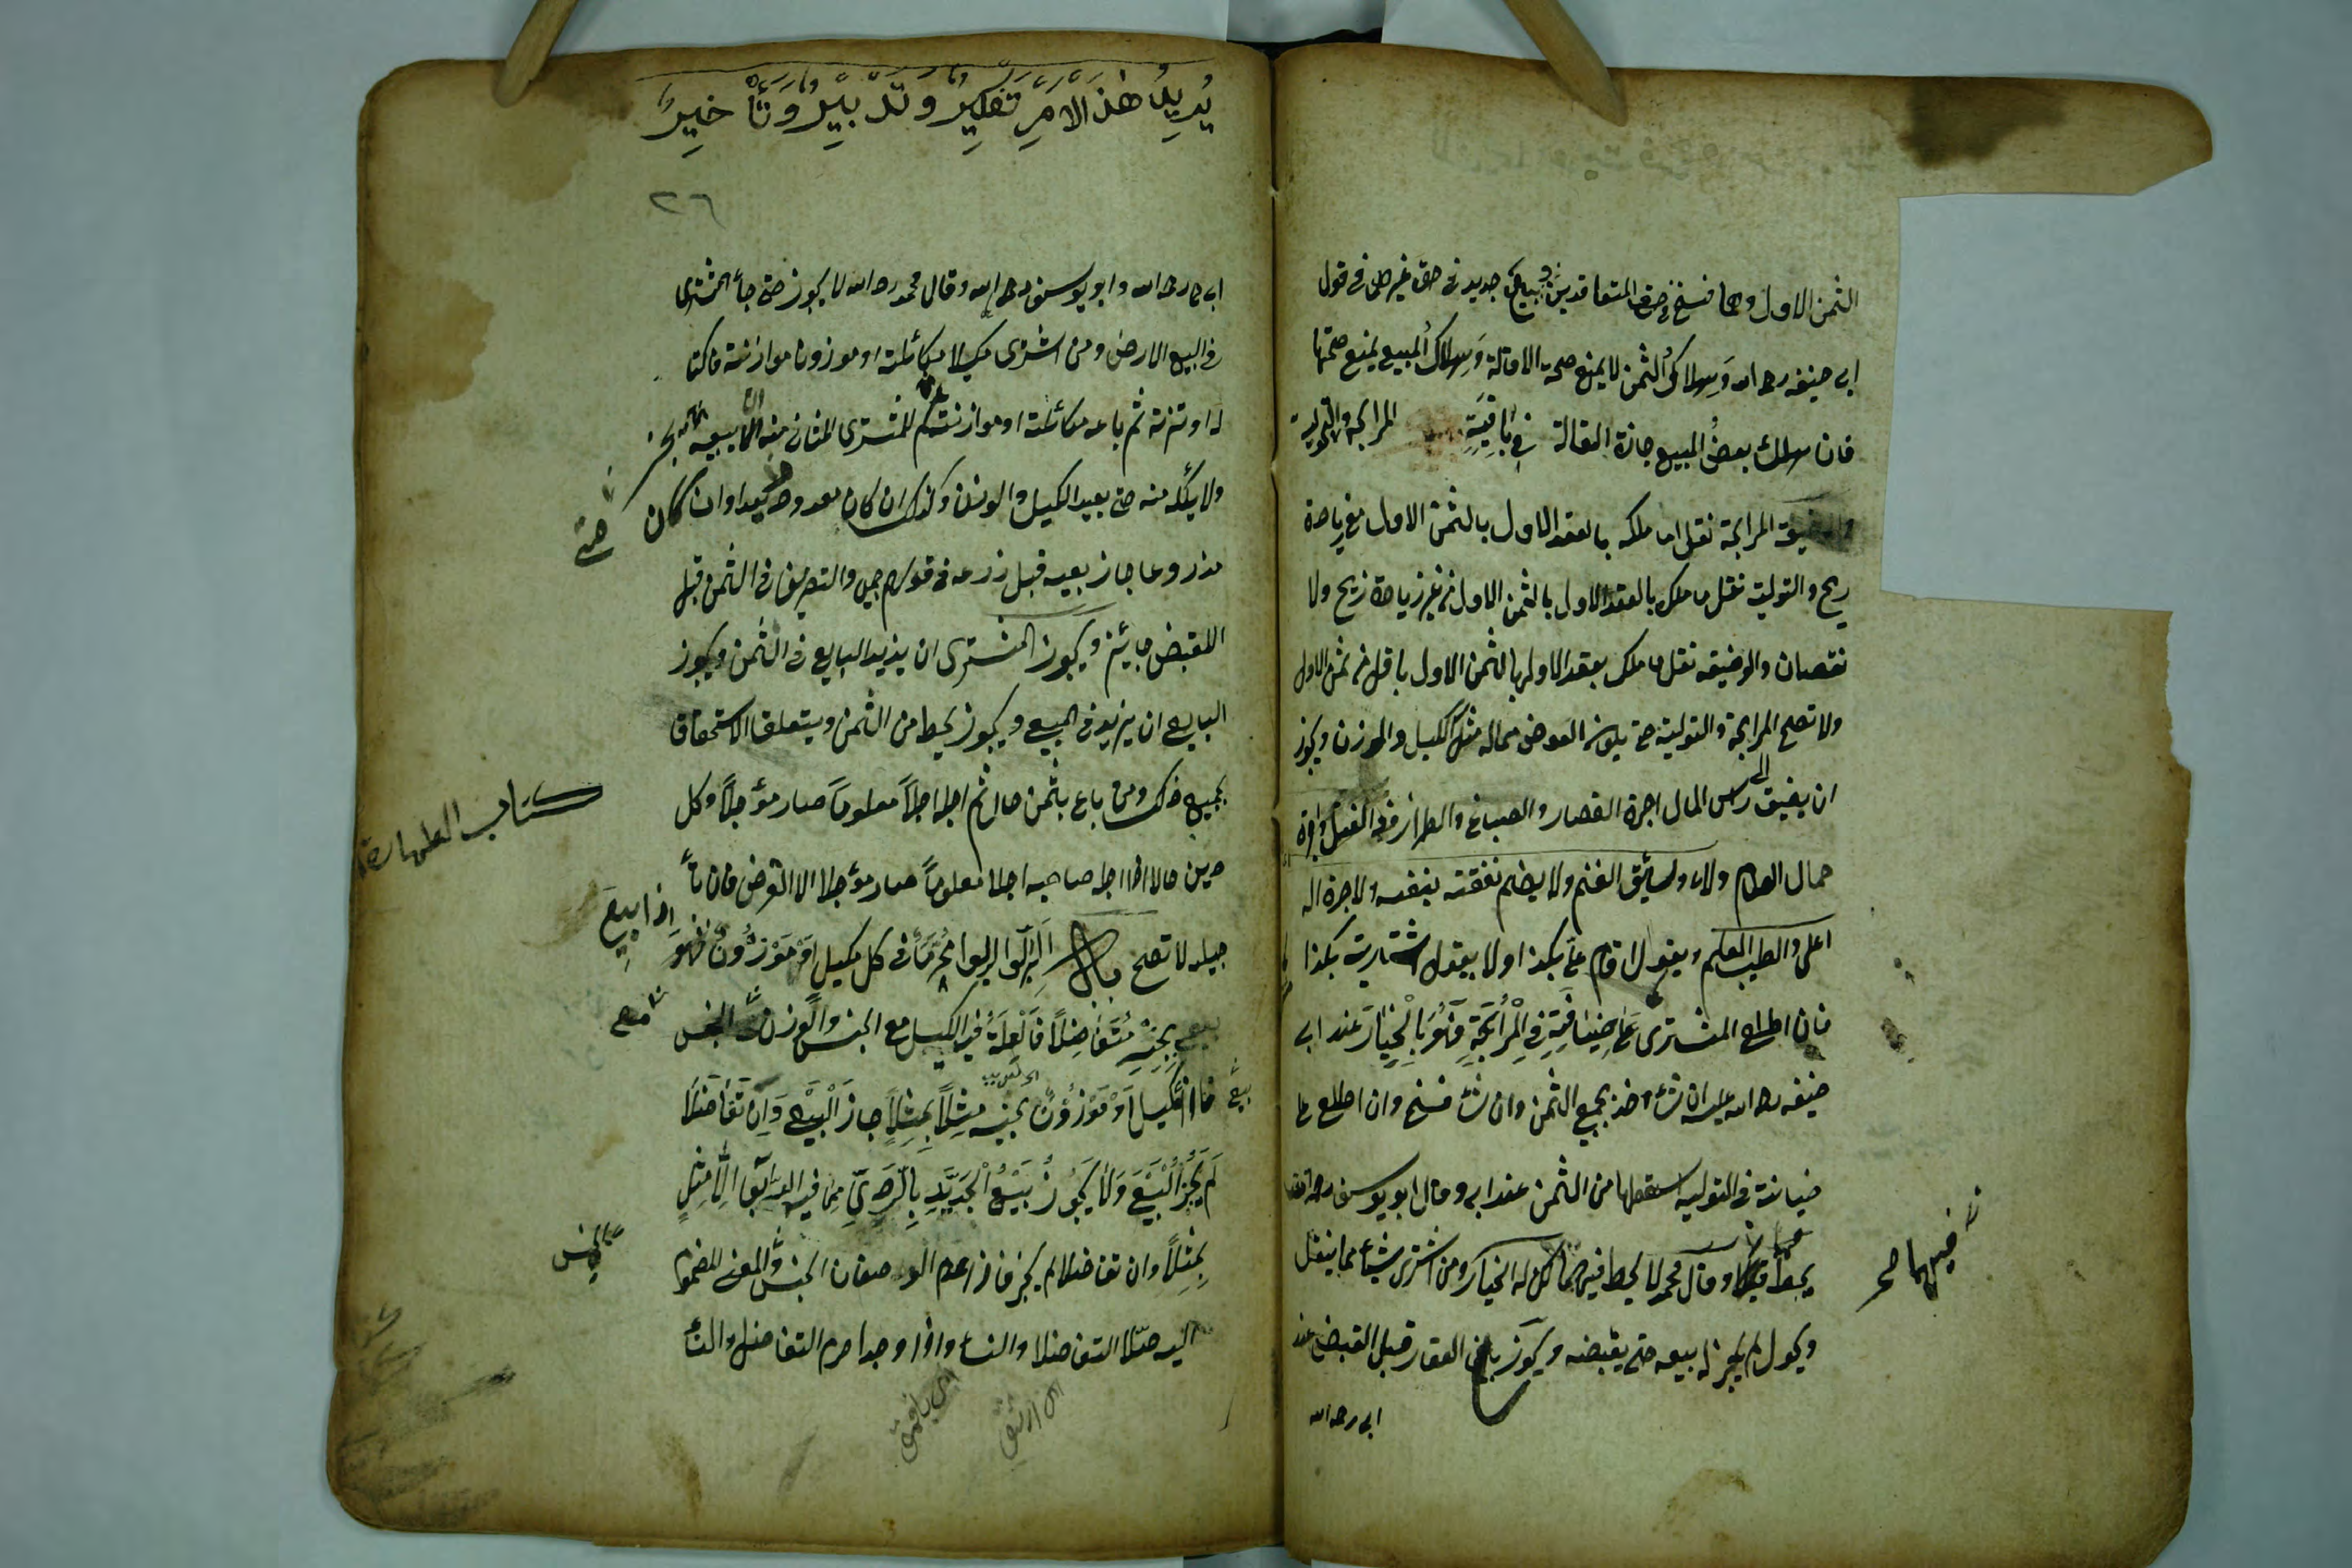 الثمن الاول وهما فسخ في حق المتعاقدين وبيع جديد في حق غيرهما في قول
ابي حنيفه رحه الله وَهلاكُ الثمن لا يمنع صحة الاقالة وَهلاكُ المبيع يمنع صحتها
فان هلك بعضُ المبيع جازة القالة في بَاقِيَةِ المرابحة والتولية
المرابحة نقل ما ملكه بالعقد الاول بالثمن الاول مع زياحة
ربح والتولية نقل ما ملك بالعقد الاول بالثمن الاول من غير زياحة ربح ولا
نقصان والوضيعه نقل ما ملك بعقد الاول بالثمن الاول باقل من ثمن الاول
ولا تصح المرابحة والتولية حتى يكون العوض مماله مثل الكيل والموزن ويجوز
ان يضيق الى رس المال اجرة القصار والصباغ والطراز والفتل واجرة
حمال الطعام ولا وسائق الغنم ولا يضم نفقته بنفسه ولا جرة ال
اعلى والطيب المعلم ويقول قام على بكذا ولا يقول اشتاريت بكذا
فان اطلع المشترى عَلى خِيَانةٍ فِي الْمُرَابَحَةِ فَهُوَ بِالْخِيَارَ عند ابى
حنيفه رحه الله عليه ان شاء اخذ بجميع الثمن وان شاء فسخ وان اطلع على
خيانة فى التوليه اسقطها من الثمن عند ابى وقال ابو يوسف رحه الله
يحط فيهما وقال محمد لا يحط فيهما لكن له الخيار ومن اشترى شيئاً مما ينقل
ويحول لم يجز له بيعه حتى يقبضه ويجوز بيع العقار قبل القبض عند
ابى رحه الله
فيهما
يُرِيدُ هٰذَ الْاَمْرِ تفكِيرُ وَتَدْبِيْرُ وَتَأْخِيرُ
٢٦
ابى ح رحه الله وابو يوسف رحه الله وقال محمد رحه الله لا يجوز
فى البيع الارض ومن اشترى مكيلا مكائلة او موزونا موازنة فاكتا
له او تزنه ثم باعه مكائلة او موازنة لم للمشترى الثانى منه ان يبيعه
ولا يأكله منه حتى يعيد الكيل والوزن وكذلك ان كان معدودا وان كان
مذروعا جاز بيعه قبل زرعه فى قولهم جميعا والتصرف فى الثمن قبل
القبض جائز ويجوز المشترى ان يزيد البايع فى الثمن ويجوز
البايع ان يزيد فى المبيع ويجوز يحط من الثمن ويتعلق الاستحقاق
بجميع ذلك ومن باع بثمن حال ثم اجله اجلاً معلوماً صار مؤجلاً وكل
دين حالا اذا اجله صاحبه اجلا معلوماً صار مؤجلا الا القرض فان تأ
جيله لا تصح باب الرِّبَوا الربوا مُحرّمة فى كل مكيل اَوْ مَوْزُوْنٌ
اذا بيع
بِجِنْسِهِ مُتَفَاضِلًا فَالْعِلَّةُ فيه الكيل مع الجنس والوزن مع الجنس
فاذا بيع المكيل اَوْ مَوْزُوْنٌ بجنسه مِثلاً بِمِثلاٍ جاز الْبَيْع وَاِن تَفَاضَلَا
لَمْ يَجُزْ الْبَيْعَ وَلَا يَجُوْزُ بَيْعُ الْجَيِّدِ بِالرَّدِيِّ مِمّا فيه الرّبوا اِلَّا مِثلٍ
بِمِثلاً وان تفاضلا لم يجز فاذا عدم الوصفان الجنس والمعنى المضموم
اليه حلا التفاضلا والنساء واذا وجدا حرم التفاضل والنساء
كتاب الطهارة